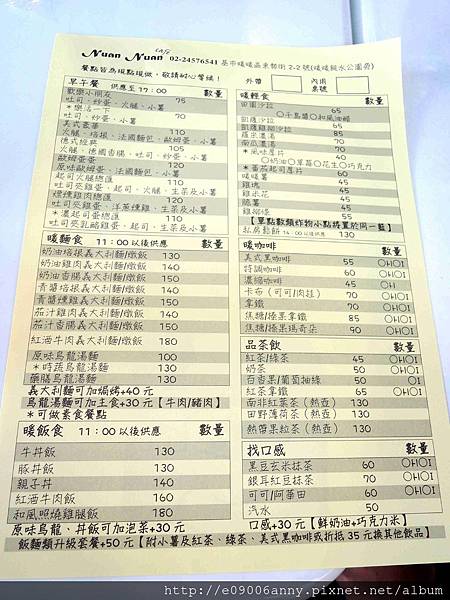 Nuan Nuan CAFE 02-24576541 基市暖暖區東勢街 2-2 號(暖暖親水公園旁)
餐點皆為現點現做，敬請耐心等候！
外帶
內用
桌號
早午餐 供應至 17：00 數量
歡樂小朋友 75
吐司、炒蛋、火腿、小薯
吐司、炒蛋、小薯
美式豪華 110
火腿、培根、法國麵包、歐姆蛋、小薯
德式經典 105
火腿、德國香腸、吐司、炒蛋、小薯
歐姆蛋蛋 120
原味歐姆蛋、法國麵包、小薯
起司火腿總匯 110
吐司夾雞蛋、起司、火腿、生菜及小薯
燻雞總匯 120
吐司夾雞蛋、洋蔥燻雞、生菜及小薯
＊濃起司蛋總匯 110
吐司夾乳酪雞蛋、生菜及小薯
暖麵食 11：00 以後供應 數量
奶油培根義大利麵/燉飯 130
奶油雞肉義大利麵/燉飯 140
奶油香腸義大利麵/燉飯 150
青醬培根義大利麵/燉飯 140
青醬燻雞義大利麵/燉飯 150
茄汁雞肉義大利麵/燉飯 140
茄汁香腸義大利麵/燉飯 150
紅酒牛肉義大利麵/燉飯 180
原味烏龍湯麵 100
＊時蔬烏龍湯麵 130
藥膳烏龍湯麵 130
義大利麵可加焗烤+40 元
烏龍湯麵可加主食+30 元【牛肉/豬肉】
＊可做素食餐點
暖飯食 11：00 以後供應 數量
牛丼飯 130
豚丼飯 130
親子丼 140
紅酒牛肉飯 160
和風照燒雞腿飯 180
原味烏龍、丼飯可加泡菜+30 元
飯麵類升級套餐+50 元【附小薯及紅茶、綠茶、美式黑咖啡或折抵 35 元換其他飲品】
暖輕食 數量
田園沙拉 65
○千島醬○和風油醋
凱薩沙拉 65
凱薩雞柳沙拉 85
羅宋濃湯 70
南瓜濃湯 70
＊風味厚片 40
○奶油○草莓○花生○巧克力
＊蕃茄起司厚片 60
暖暖薯 45
雞塊 45
雞米花 45
脆薯 45
雞柳條 55
【單點數類炸物小點將置於同一籃】
私房鬆餅 14：00 以後供應 130
暖咖啡 數量
美式黑咖啡 55 ○H○I
特調咖啡 60 ○H○I
濃縮咖啡 45 ○H
卡布（可可/肉桂） 70 ○H○I
拿鐵 70 ○H○I
焦糖/榛果拿鐵 85 ○H○I
焦糖/榛果瑪奇朵 90 ○H○I
品茶飲 數量
紅茶/綠茶 45 ○H○I
奶茶 50 ○H○I
百香果/葡萄柚綠 50 ○I
紅茶拿鐵 65 ○H○I
南非紅葉茶（熱壺） 130
田野薄荷茶（熱壺） 130
熱帶果粒茶（熱壺） 130
找口感 數量
黑豆玄米抹茶 60 ○H○I
銀耳紅豆抹茶 70 ○H○I
可可/阿華田 60 ○H○I
汽水 50
口感+30 元【鮮奶油+巧克力米】
http://e09006anny.pixnet.net/album